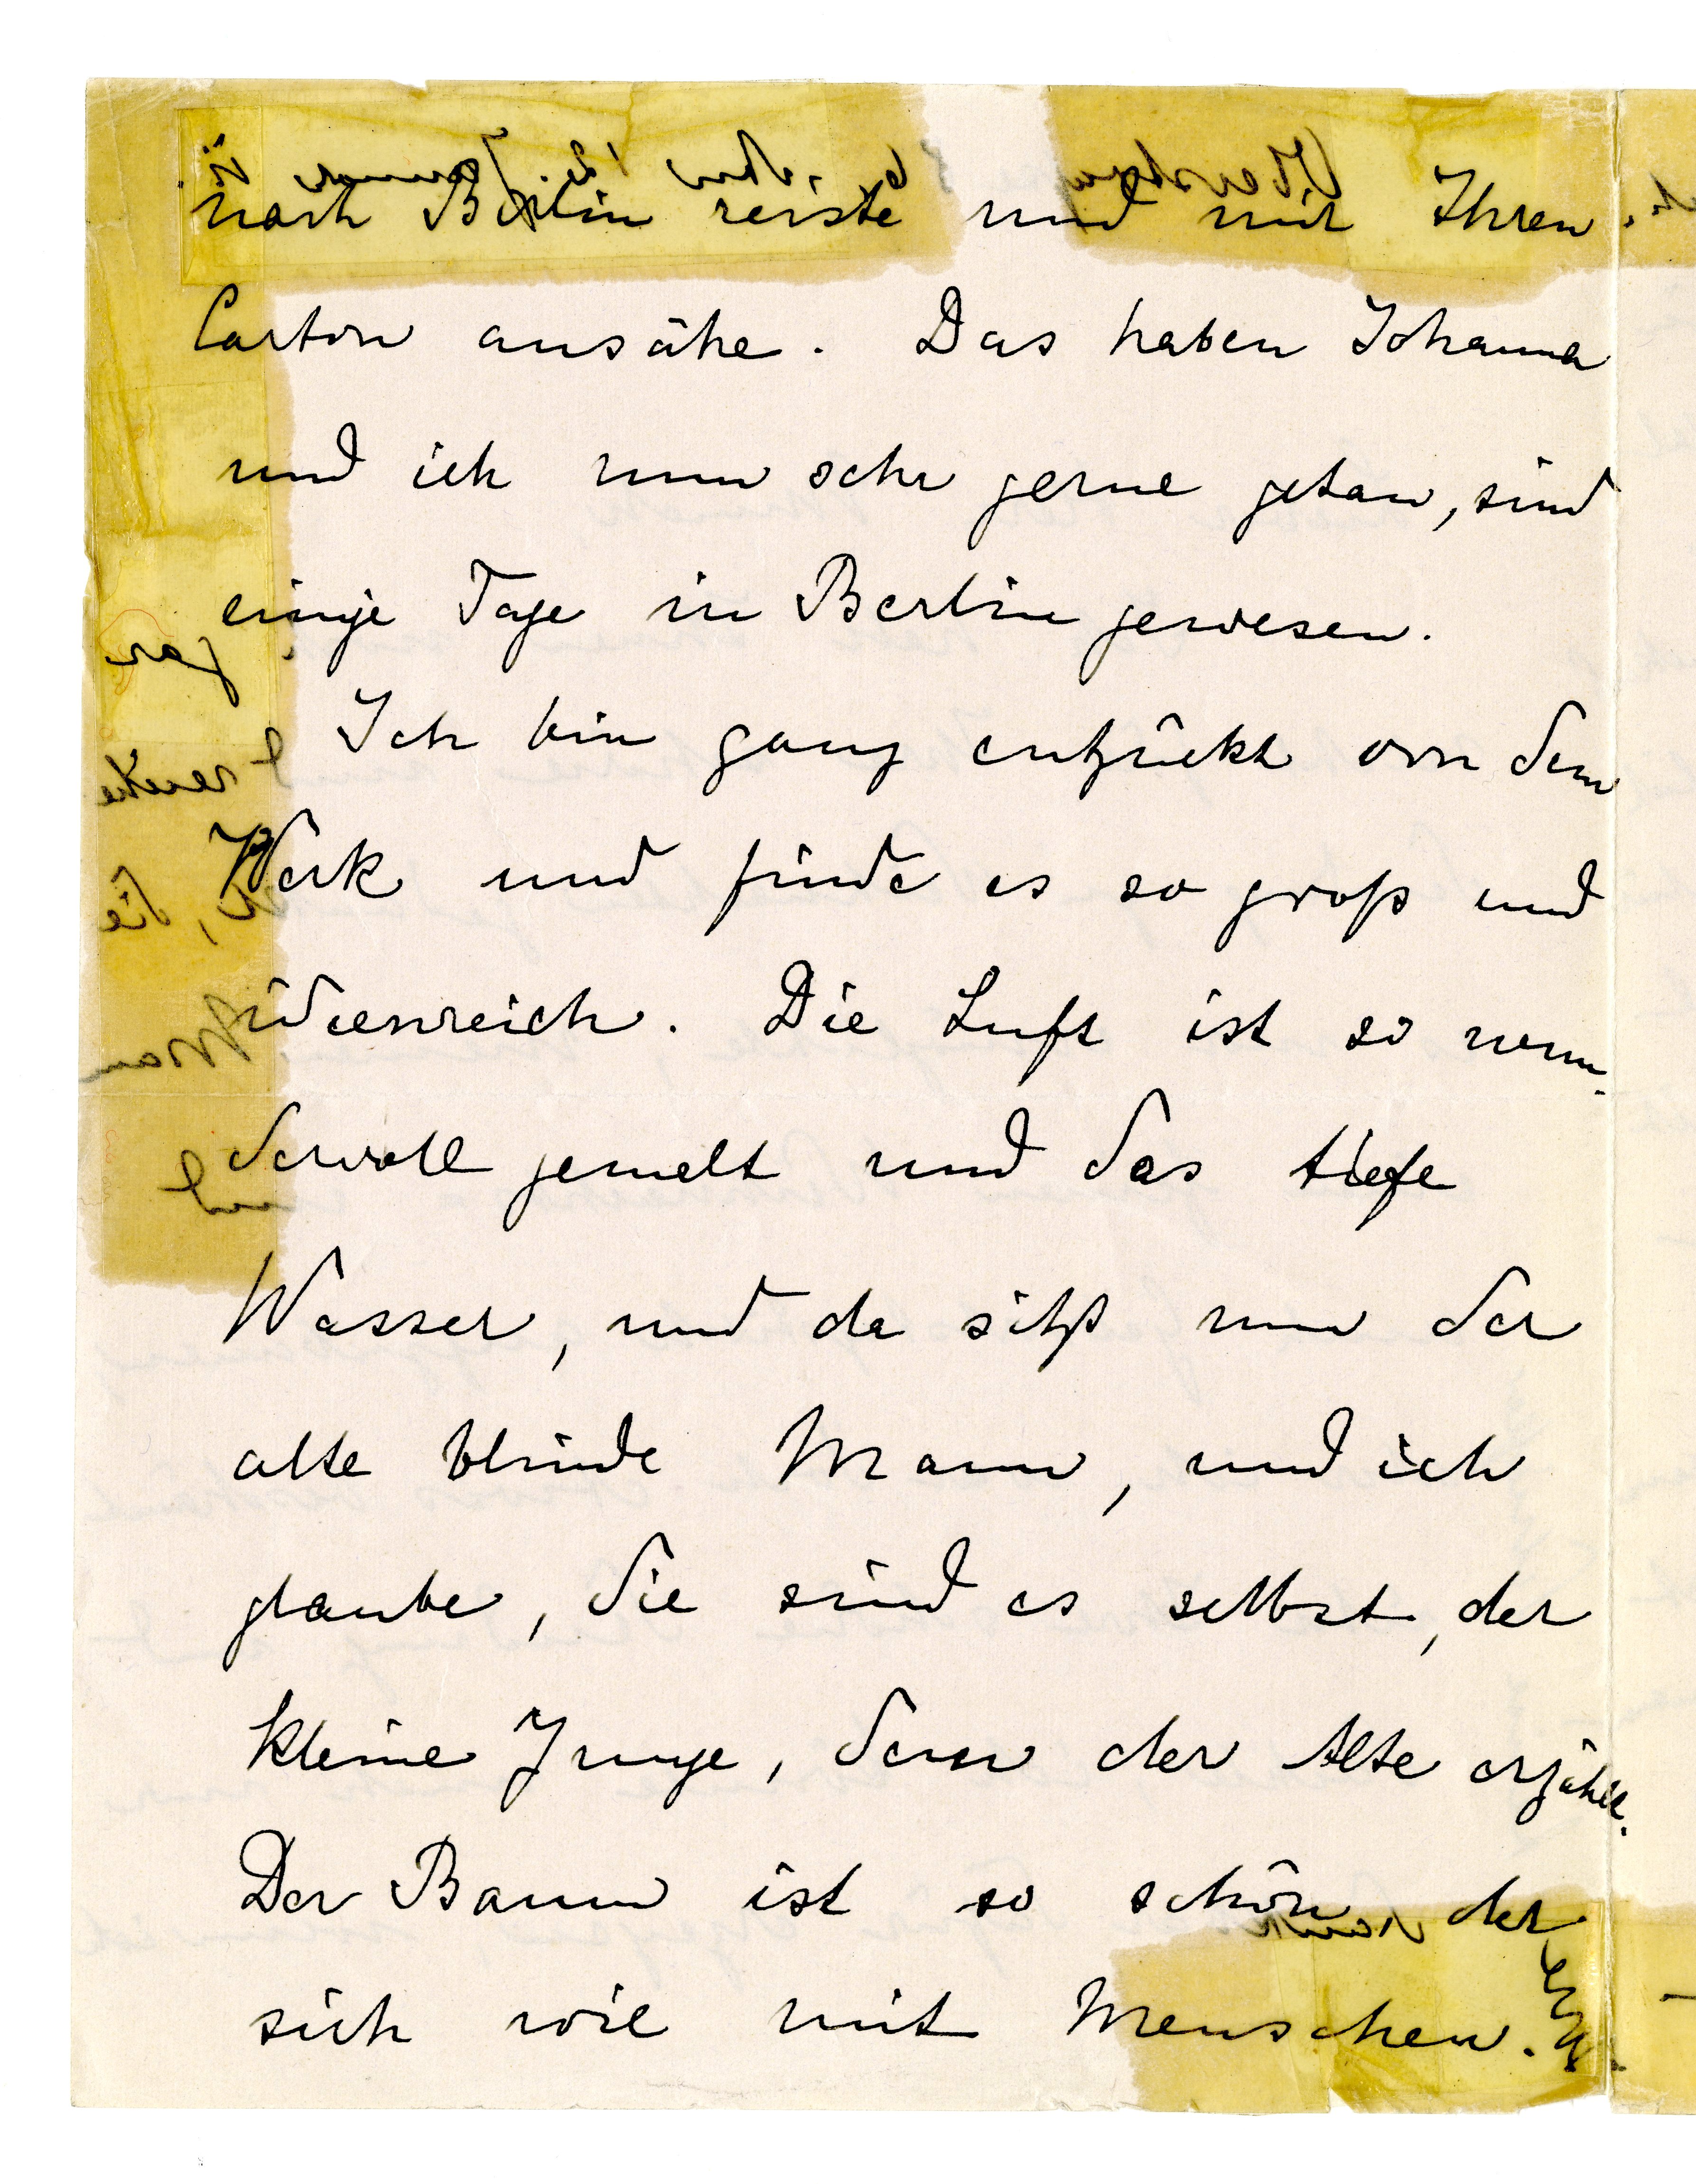 nach Berlin reiste und mir Ihren
Carton ansähe. Das haben Johanna
und ich nun sehr gerne getan, sind
einige Tage in Berlin gewesen.
Ich bin ganz entzückt von dem
Werk und finde es so groß und
ideenreich. Die Luft ist so wun-
dervoll gemalt und das tiefe
Wasser, und da sitzt nun der
alte blinde Mann, und ich
glaube, Sie sind es selbst, der
kleine Junge, dem der Alte erzählt.
Der Baum ist so schön, der
sich wie mit Menschen-